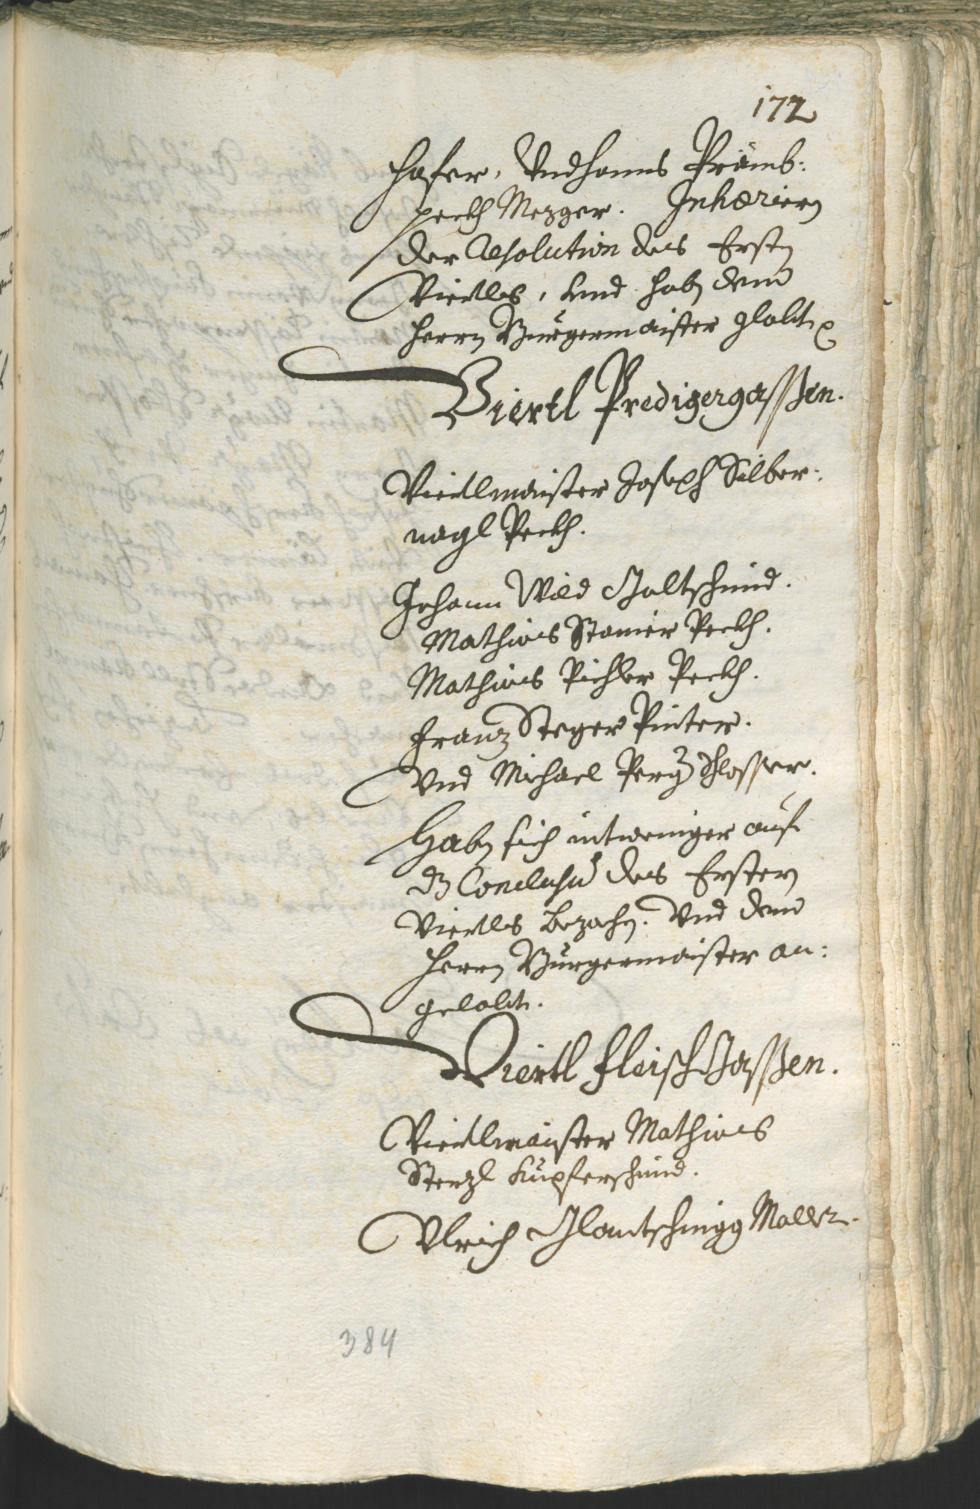 172
hafer, Vnd Hanns Prämb:
perkh Mezger. Inhæriern
der Resolution des Erstn
Viertls, Vnd habn dem
Herrn Burgermaister globt
Viertl Predigergassßen.
Viertlmaister Joseph Silber:
nagl Pekh.
Johann Wild Goltschmid.
Mathias Stamer Pekh.
Mathias Pichler Pekh.
Franz Steger Pinter.
Vnd Michael Perg Schlosser.
Habn sich intweniger auf
dz Conclusũ des Erstern
Viertls bezohn. Vnd dem
Herrn Burgermaister an:
gelobt.
Viertl FleischGassßen.
Viertlmaister Mathias
Sterzl Kupferschmid.
Vlrich Glantschnigg Maller.
384